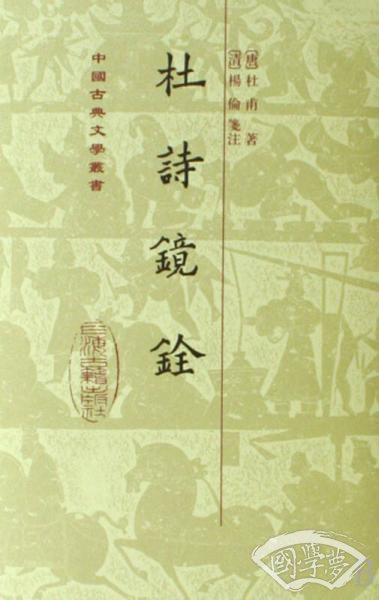 [唐]杜甫著
[清]楊倫箋注
杜詩鏡銓
中國古典文學叢書
上海古籍出版社
國學夢